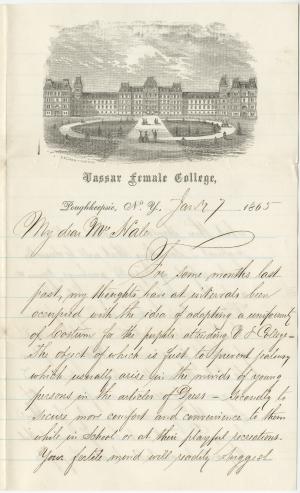 Vassar Female College,
Poughkeepsie, N. Y. Jany 7 1865
My dear Mrs Hale
For some months last
past, my thoughts have at intervals been
occupied with the idea of adopting a uniformity
of Costum for the pupils attending V F College –
The object of which is first to prevent jealousy
which usually arise in the minds of young
persons in the articles of Dress – Secondly to
secure more comfort and convenience to them
while in School or at their playful recreations.
Your fertile mind will readily suggest